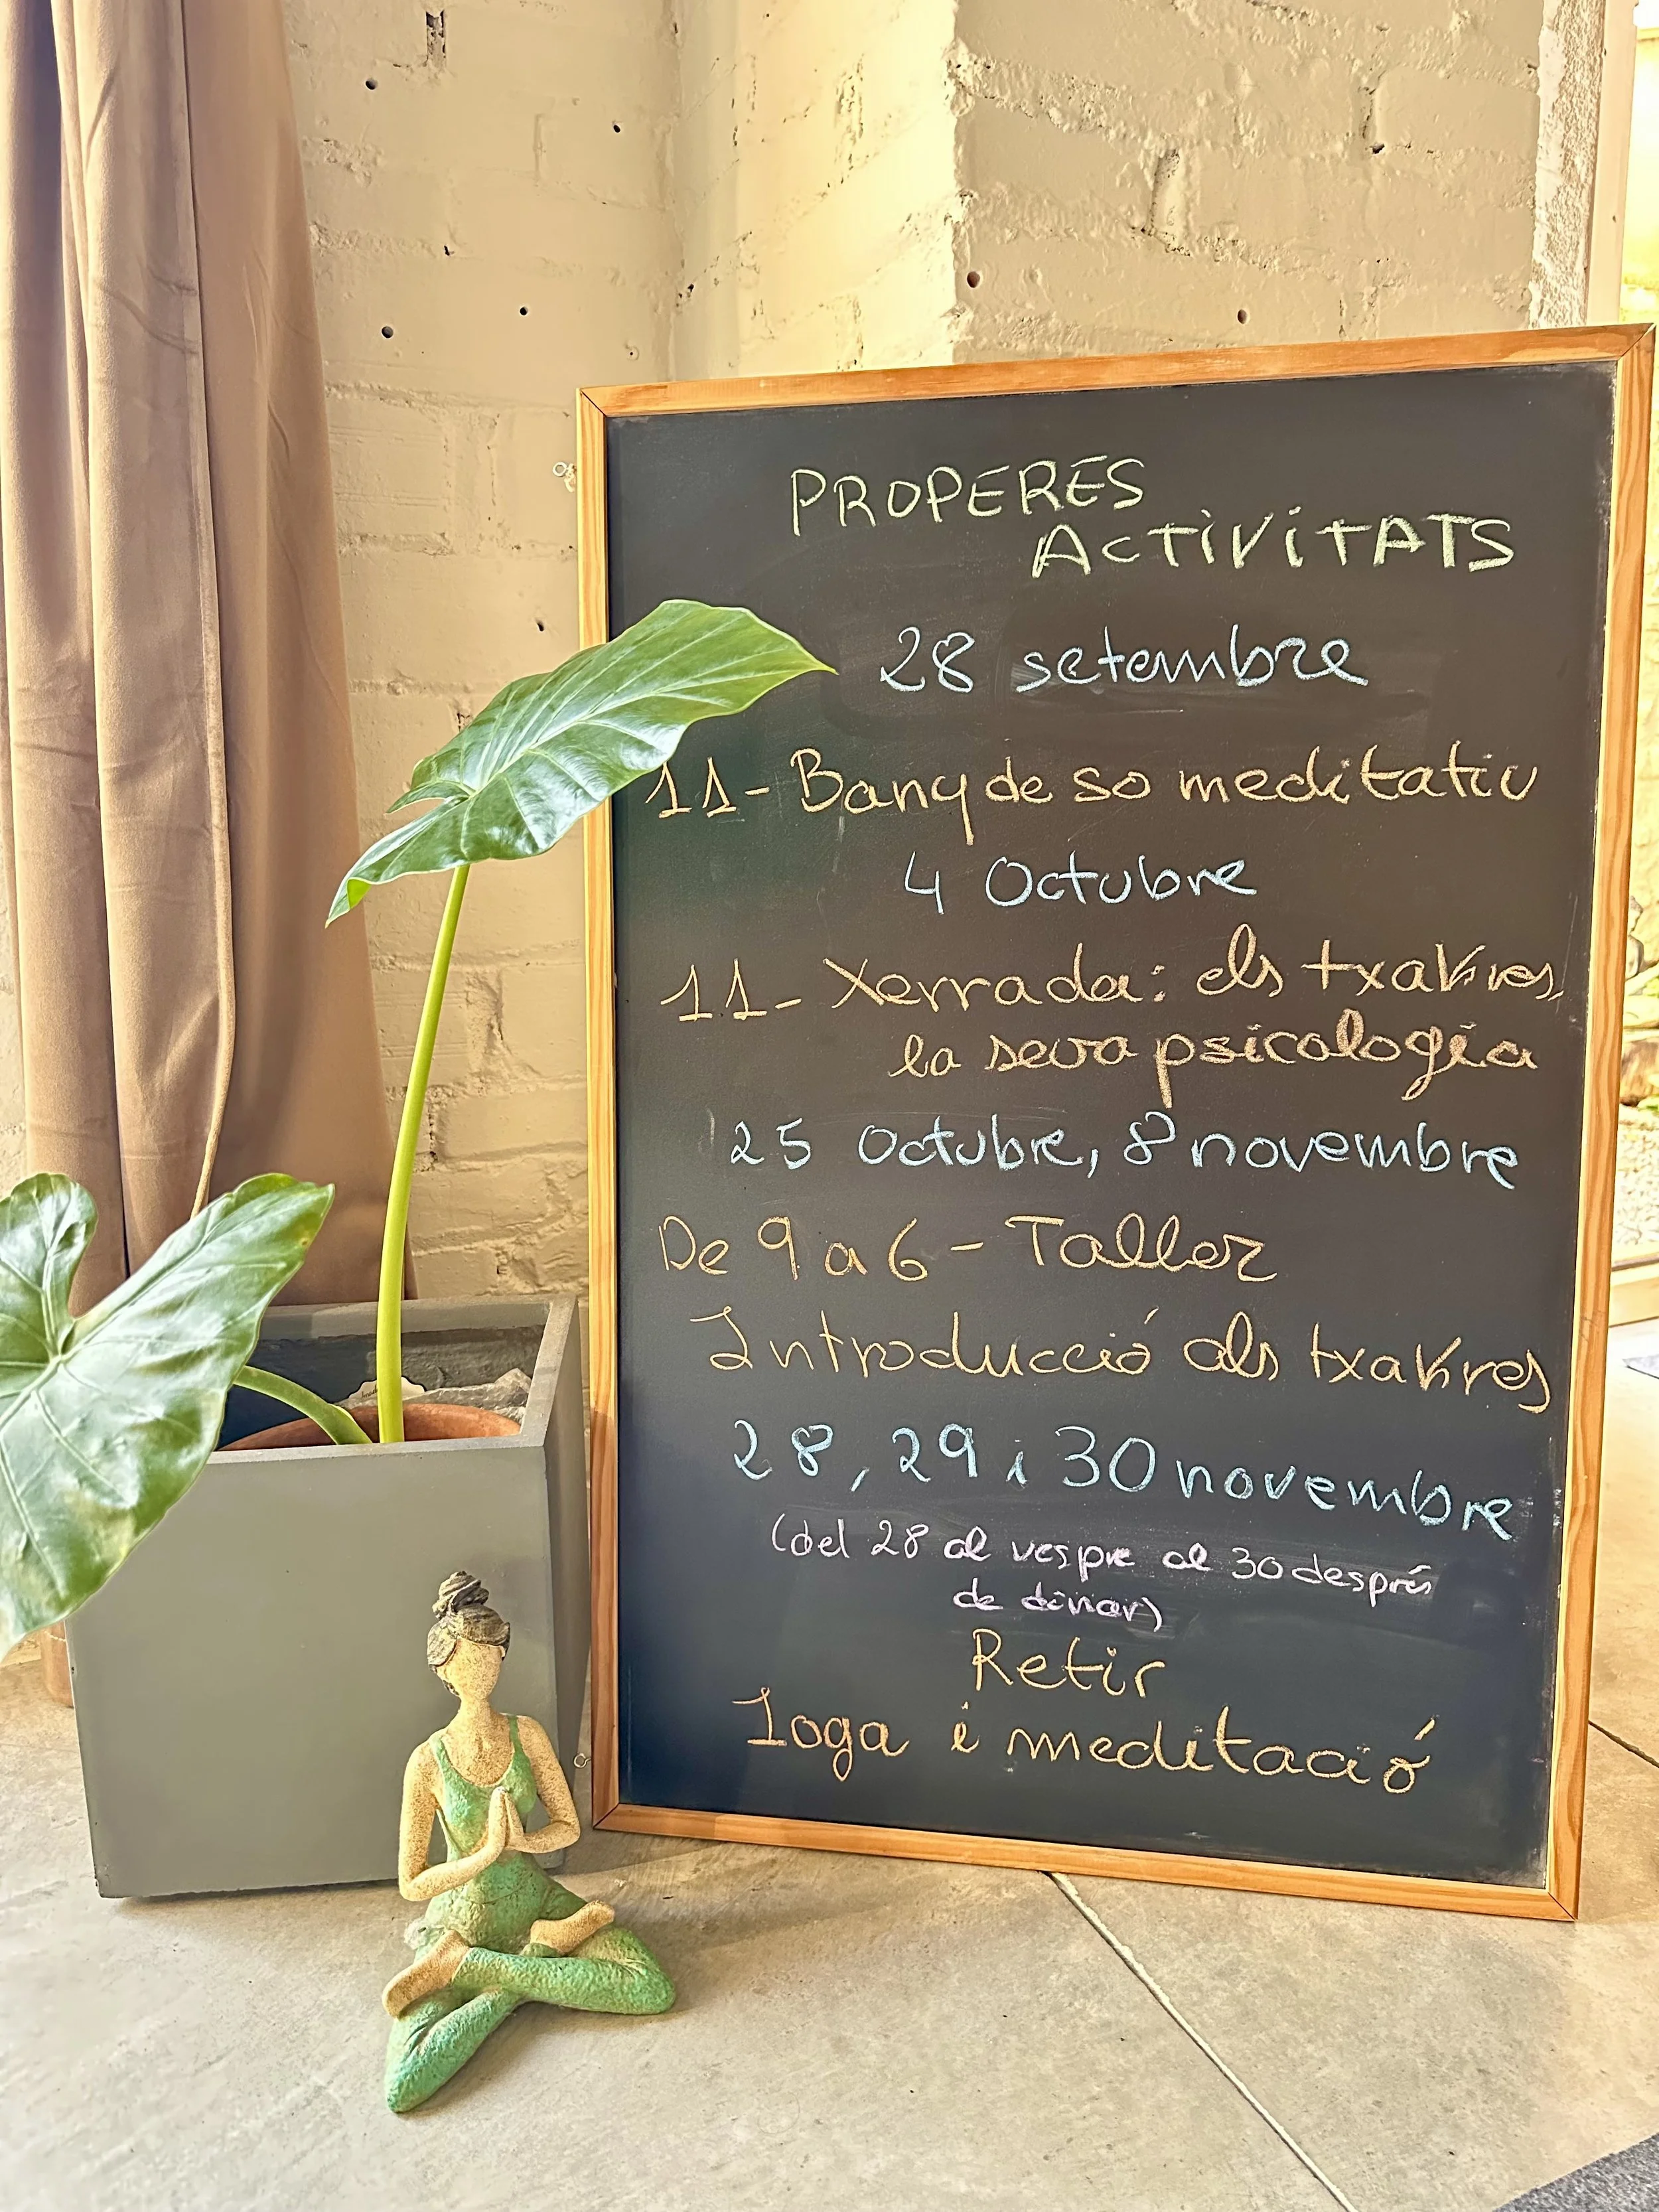 PROPERES
ACTIVITATS
28 setembre
11- Bany de so meditatiu
4 Octubre
11- Xerrada: els txakres,
la seva psicologia
25 Octubre, 8 novembre
De 9 a 6 - Taller
Introducció als txakres
28, 29 i 30 novembre
(del 28 al vespre al 30 després
de dinar)
Retir
Ioga i meditació